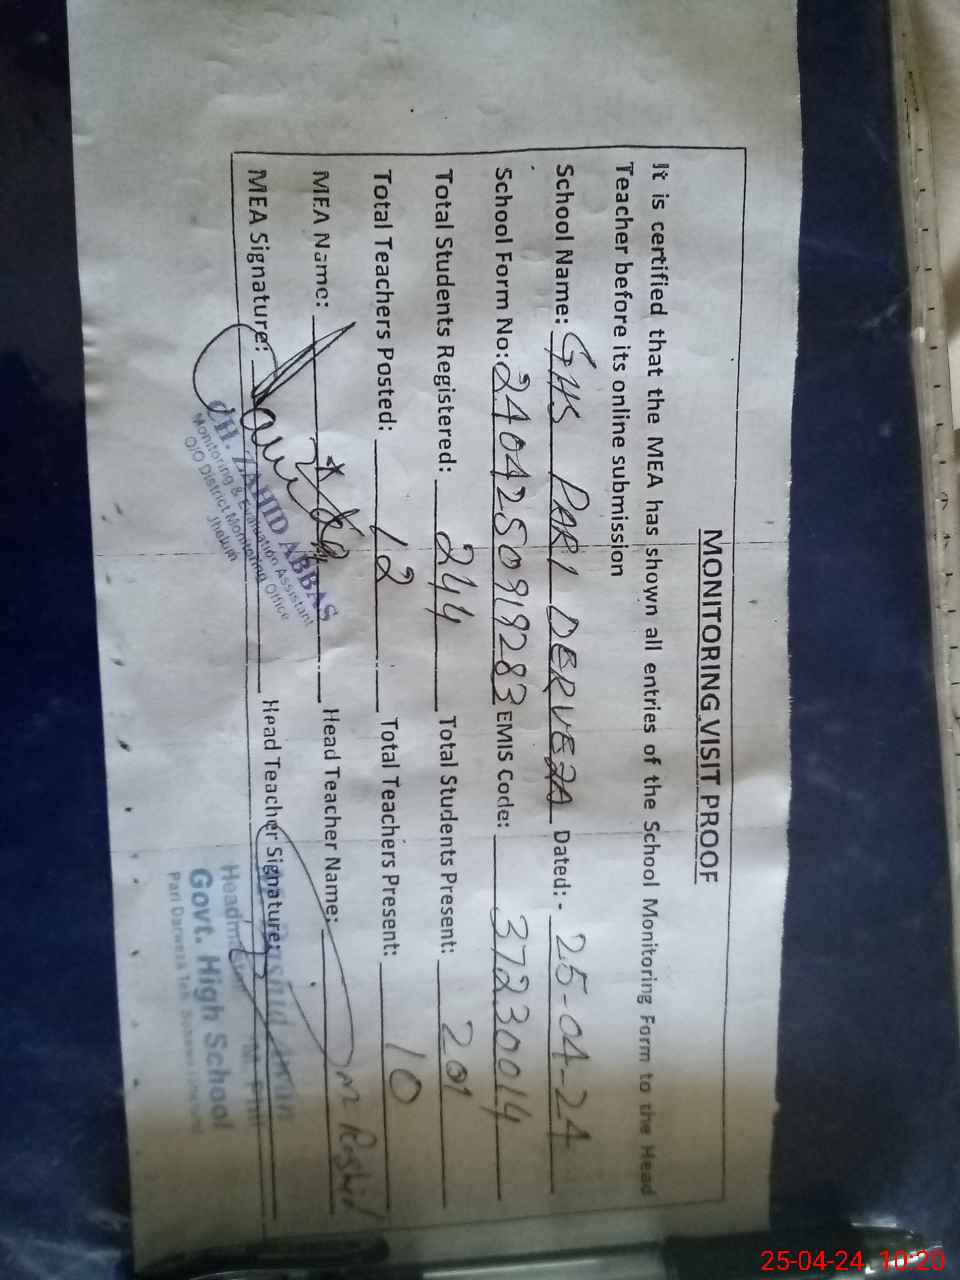 MONITORING VISIT PROOF
It is certified that the MEA has shown all entries of the School Monitoring Form to the Head
Teacher before its online submission
School Name: GHS PARI DERVEZA Dated:- 25-04-24
School Form No: 2404250919283 EMIS Code: 37230014
Total Students Registered: 244 Total Students Present: 201
Total Teachers Posted: 12 Total Teachers Present: 10
MEA Name: Head Teacher Name: M Rashid
MEA Signature: Head Teacher Signature:
CH. ZAHID ABBAS
Monitoring & Evaluation Assistant
O/O District Monitoring Office
Jhelum
Headmaster
Govt. High School
Pari Darweza Teh.
25-04-24 10:20